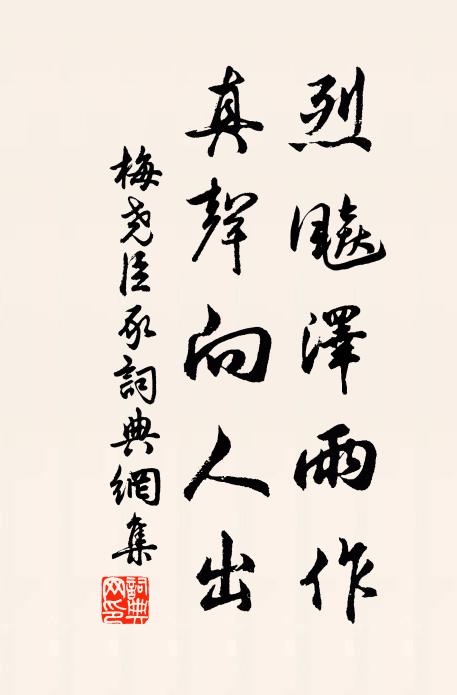 烈飈澤雨作
真聲向人出
梅堯臣承詞典網集
詞典
网印